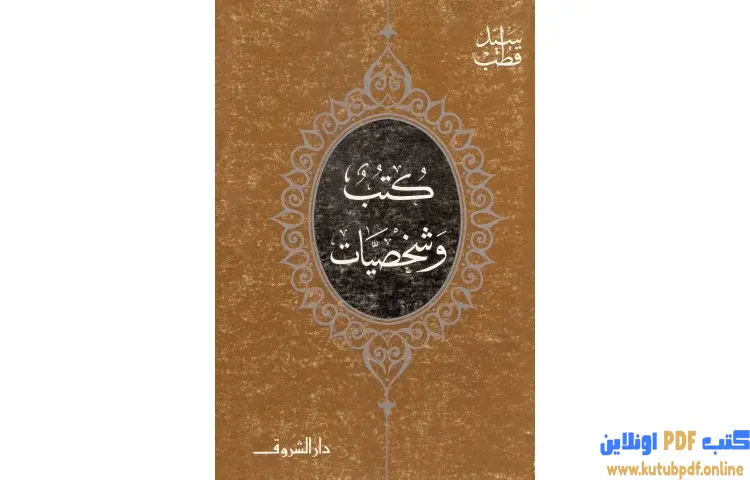 سيد
قطب
كُتُبٌ
وَشَخصيَّات
دار الشروق
كتب PDF اونلاين
www.kutubpdf.online